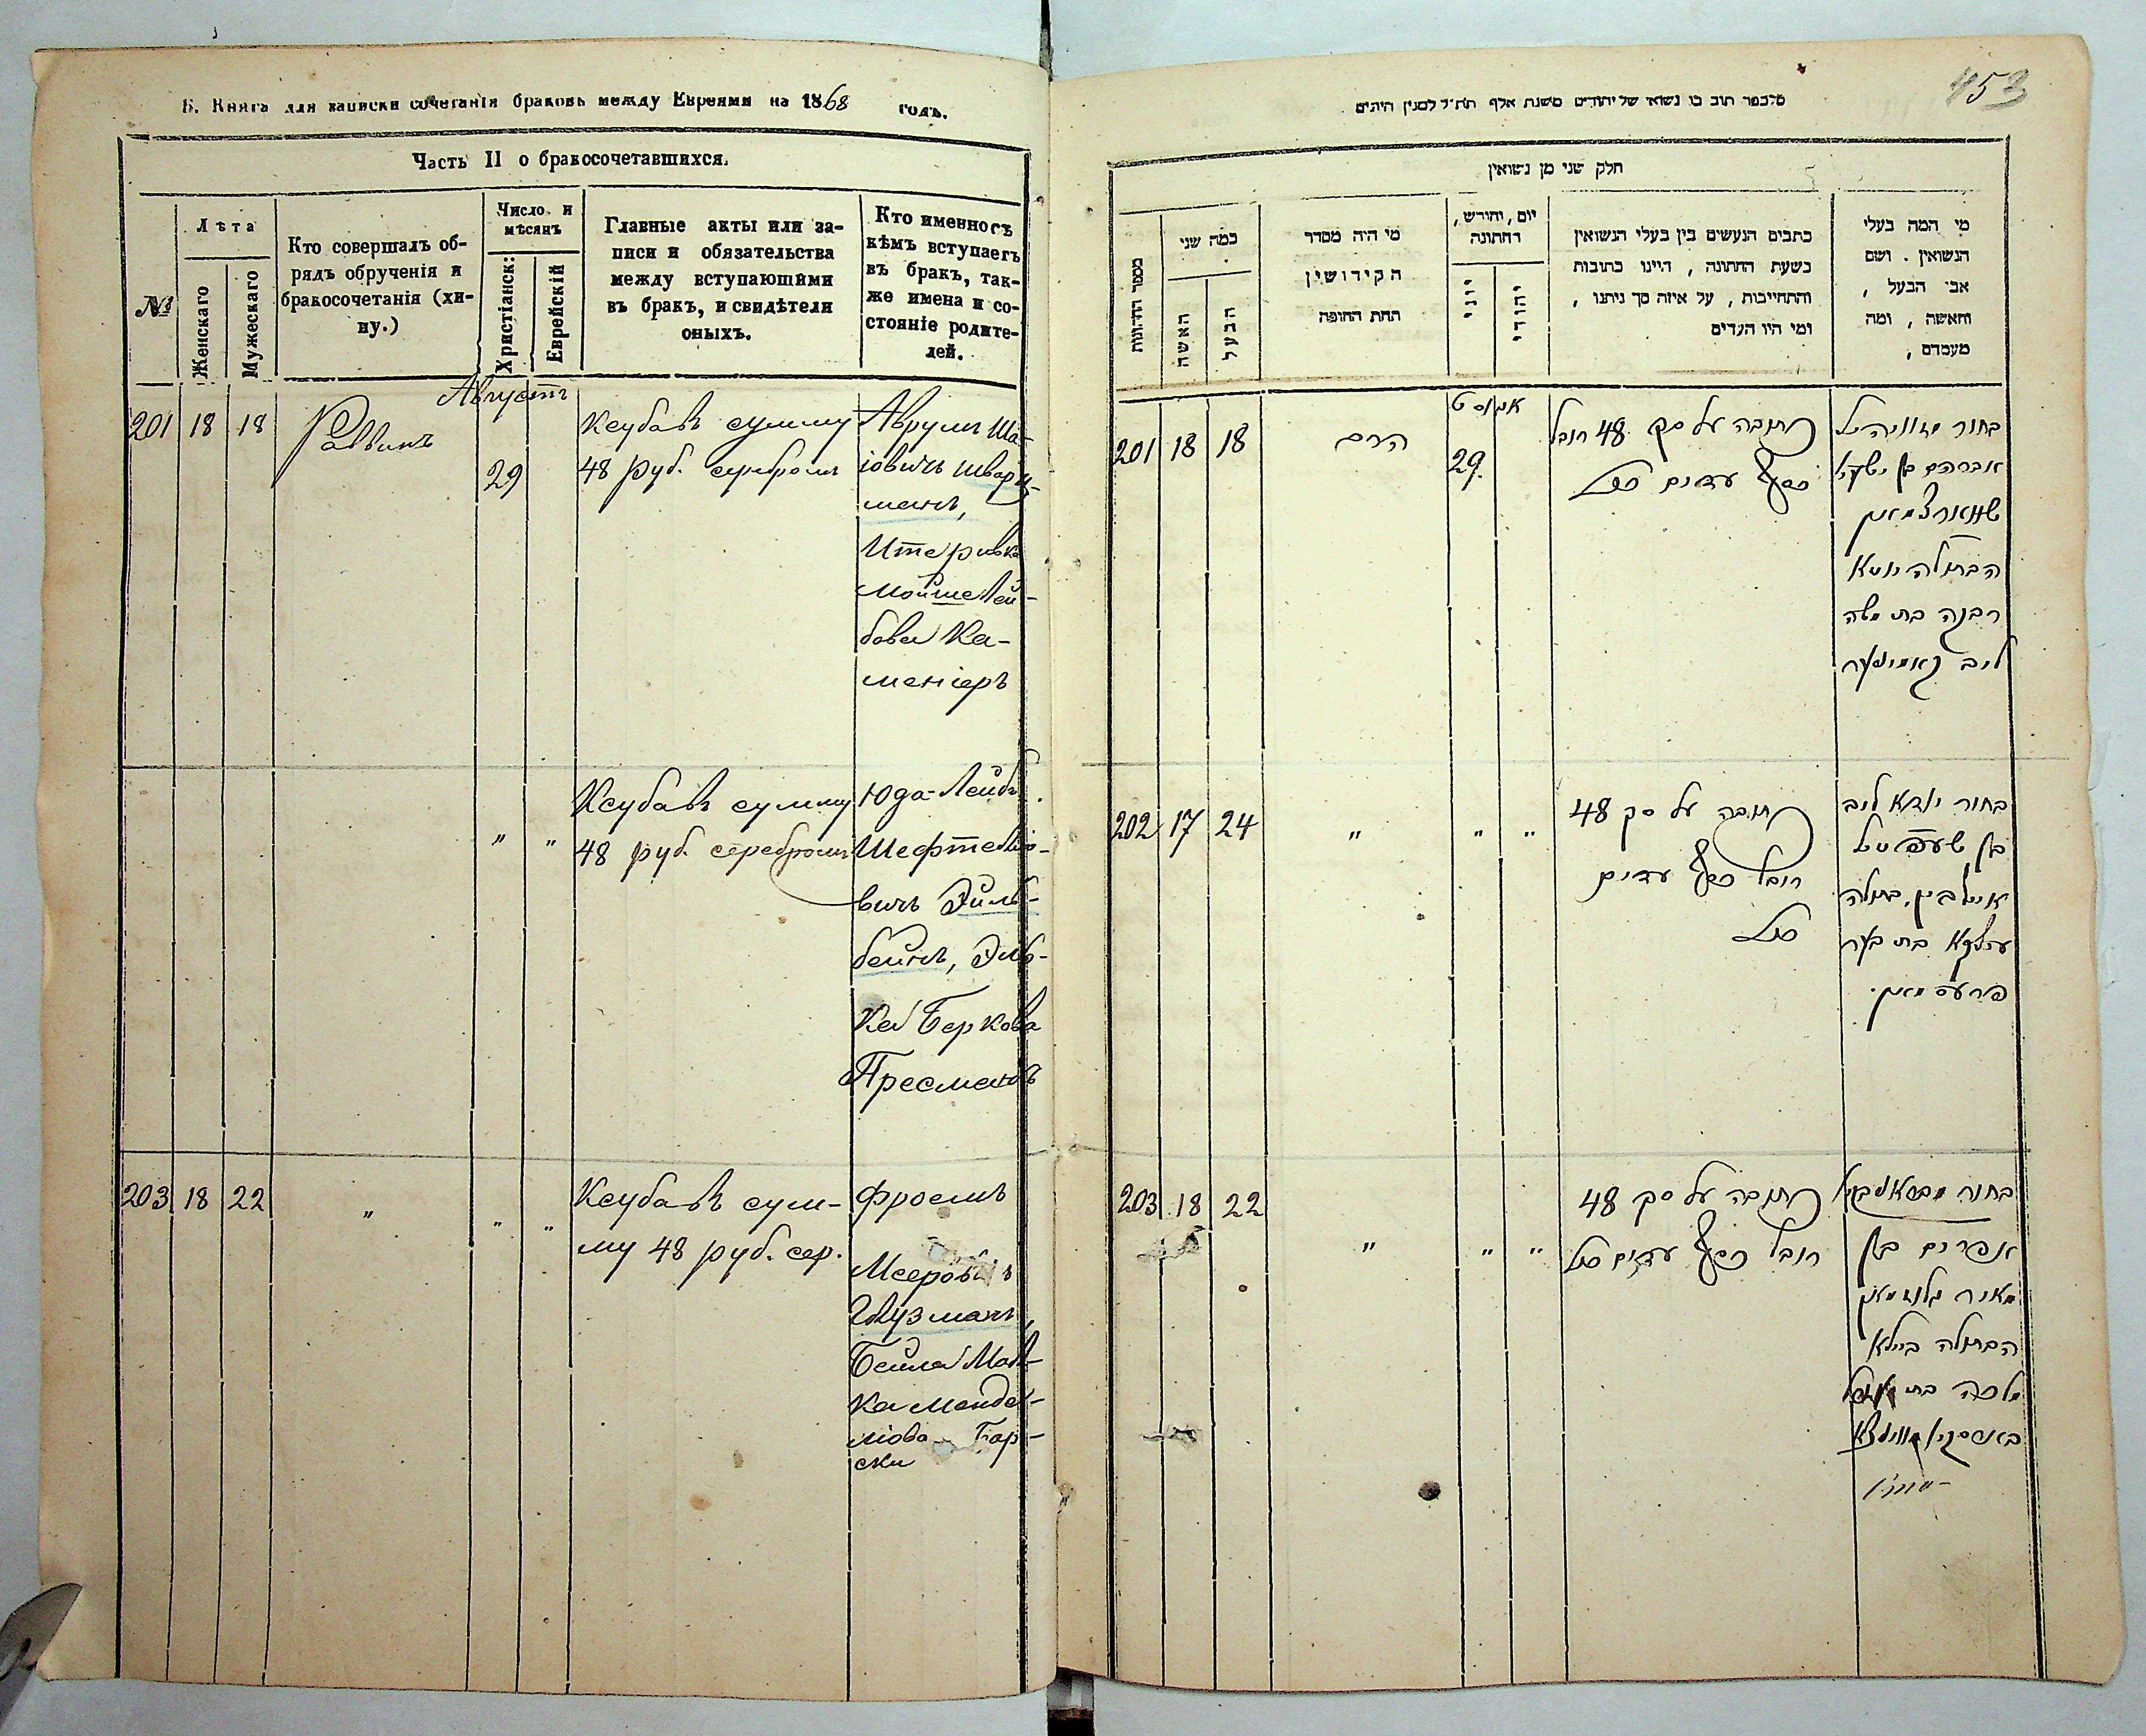 Б. Книга для записки сочетанія браковъ между Евреями на 1868 годъ.
Часть II о бракосочетавшихся.
№
Лѣта
Женскаго
Мужескаго
Кто совершалъ об-
рядъ обрученія и
бракосочетанія (хи-
пу.)
Число и
мѣсяцъ
Христіанск:
Еврейскій
Главные акты или за-
писи и обязательства
между вступающими
въ бракъ, и свидѣтели
оныхъ.
Кто именно съ
кѣмъ вступаетъ
въ бракъ, так-
же имена и со-
стояніе родите-
лей.
Августъ
201 18 18
Раввинъ
29
Ксубавъ сумму
48 руб. серебромъ
Аврумъ Ша-
іовичъ Шварц-
манъ,
Ите ривка
Мойше Лей-
бова Ка-
меніеръ
" "
Ксубавъ сумму
48 руб. серебромъ
Юда-Лейбъ
Шефтеліо-
вичъ Эйль-
бейнъ, Эль-
ка Беркова
Пресманъ
203 18 22
" " "
Ксубавъ сум-
му 48 руб. сер.
Фроемъ
Мееровичъ
Глузманъ,
Бейла Мал-
ка Менде-
ліова Бар-
ски
453
חלק שני מן נשואין
כמה שני
האשה
הבעל
מי היה מסדר
הקידושין
תחת החופה
יום, וחודש,
החתונה
יוני
יהודי
כתבים הנעשים בין בעלי הנשואין
בשעת החתונה, היינו כתובות
והתחייבות, על איזה סך ניתנו,
ומי היו העדים
מי המה בעלי
הנשואין. ושם
אבי הבעל,
והאשה, ומה
מעמדם,
אגוסט
201 18 18
הרם
29.
כתובה על סך 48 רובל
כסף עדים
בחור
אברהם בן ישעי'
שווארצמאן
הבתולה יוטא
רבקה בת משה
ליב קאמינער
202 17 24
" " "
כתובה על סך 48
רובל כסף עדים
בחור יודא ליב
בן שעפטיל
אייל ביין, בתולה
עלקא בת בער
פרעסמאן.
203 18 22
" " "
כתובה על סך 48
רובל כסף עדים
בחור
אפרים בן
מאיר גלוזמאן
הבתולה ביילא
מלכה בת